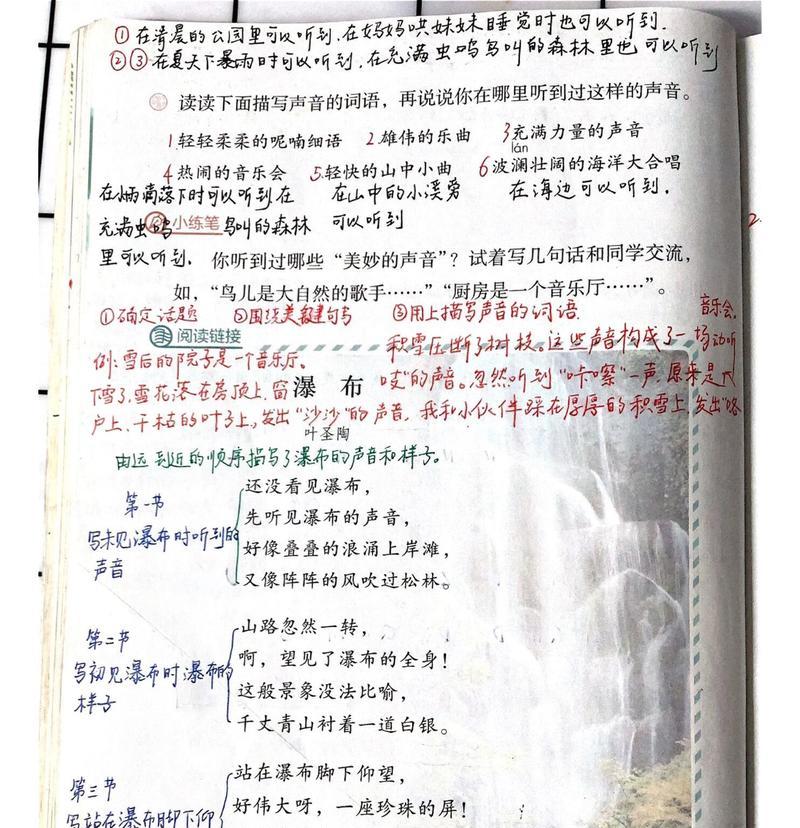 ①在清晨的公园里可以听到,在妈妈哄妹妹睡觉时也可以听到.
②③在夏天下暴雨时可以听到,在充满虫鸣鸟叫的森林里也可以听到
读读下面描写声音的词语,再说说你在哪里听到过这样的声音。
1轻轻柔柔的呢喃细语 2雄伟的乐曲 3充满力量的声音
lán
4热闹的音乐会 5.轻快的山中小曲 6波澜壮阔的海洋大合唱
落下时可以听到在 在山中的小溪旁 在海边可以听到.
充满虫鸣 小练笔 鸟叫的森林 可以听到
里可以听到. 你听到过哪些“美妙的声音”?试着写几句话和同学交流,
如,“鸟儿是大自然的歌手……”“厨房是一个音乐厅……”。
①确定话题 ②围绕关键句写 ③用上描写声音的词语. 音乐会.
阅读链接 积雪压断了树枝。这些声音构成了一场动听
例:雪后的院子是一个音乐厅。
下雪了,雪花落在房顶上,窗 瀑布 吱”的声音。忽然听到“咔嚓”一声,原来是
户上,干枯的叶子上,发出“沙沙”的声音,我和小伙伴踩在厚厚的积雪上,发出“咯
叶圣陶
由远到近的顺序描写了瀑布的声音和样子。
第一节
写未见瀑布时听到的
声音
还没看见瀑布,
先听见瀑布的声音,
好像叠叠的浪涌上岸滩,
又像阵阵的风吹过松林。
第二节
写初见瀑布时瀑布的
样子
山路忽然一转,
啊,望见了瀑布的全身!
这般景象没法比喻,
千丈青山衬着一道白银。
第三节
写站在瀑布脚下仰
站在瀑布脚下仰望,
好伟大呀,一座珍珠的屏!
2.